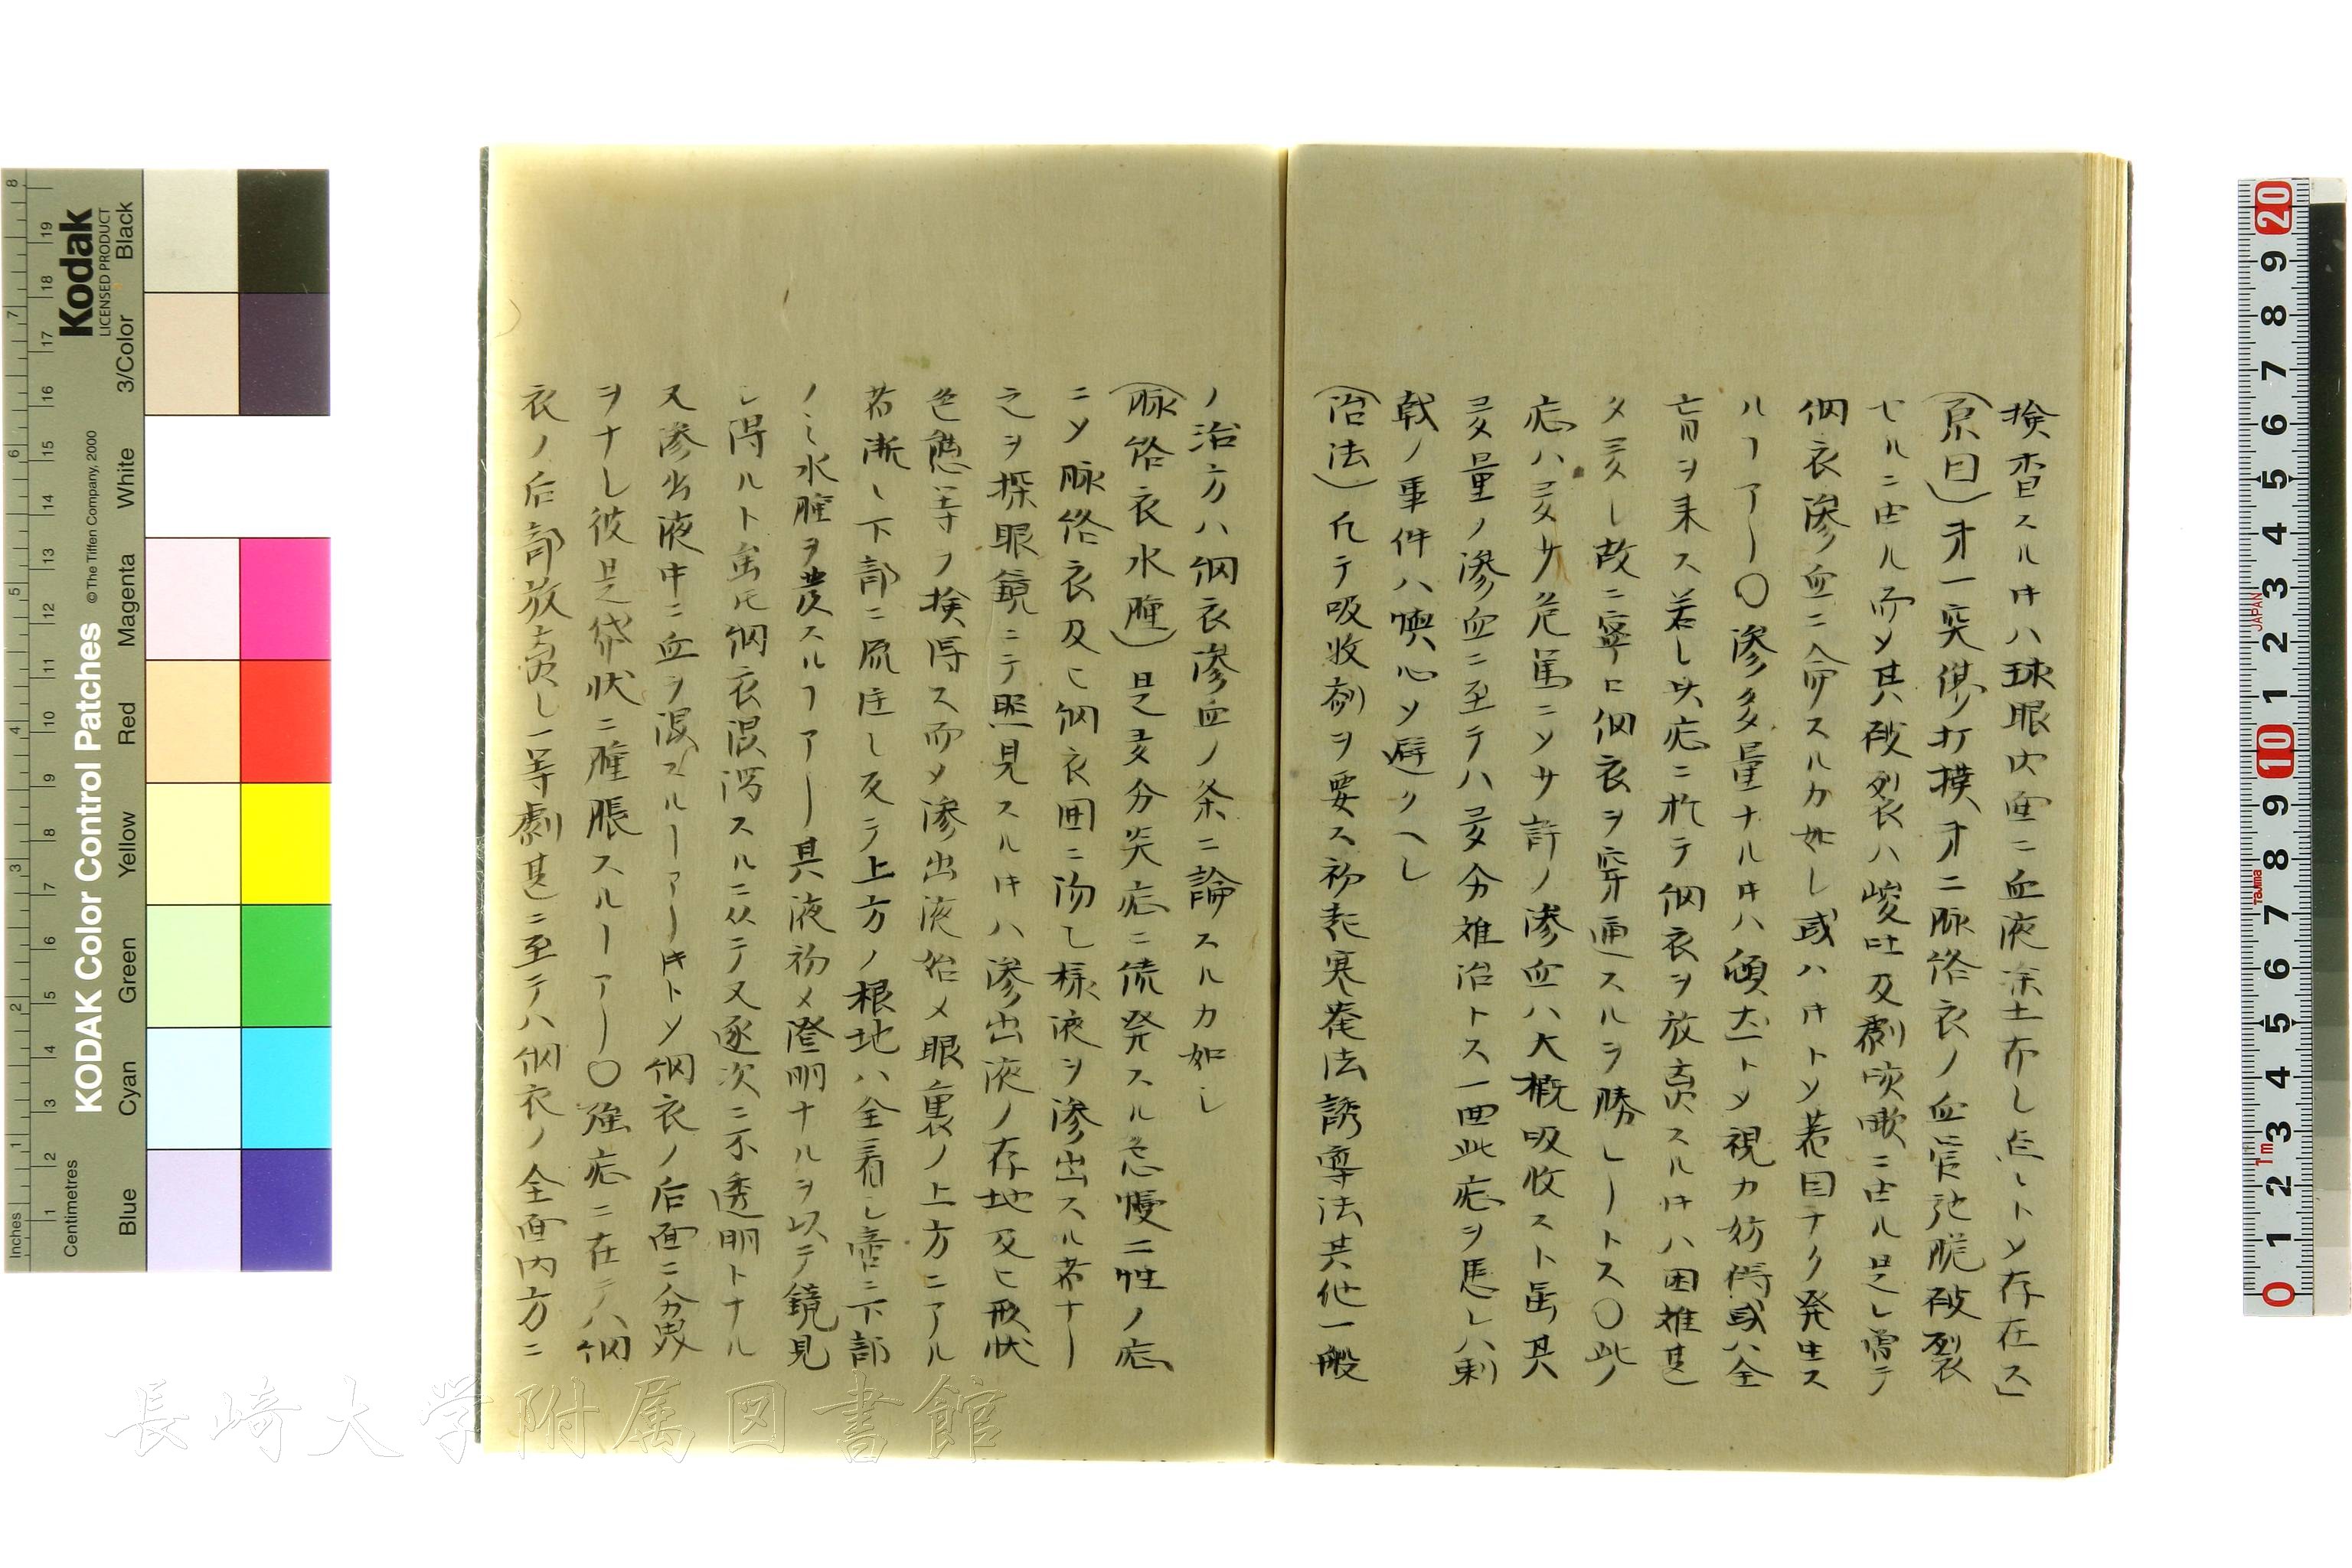 検査スルヰハ球眼内面ニ血液塗布し点々トソ存在ス」
(原因)才一突傷打撲才二脈絡衣ノ血管弛脆破裂
セルニ由ル而ソ其破裂ハ峻吐及劇咳嗽ニ由ル是レ曽テ
網衣滲血ニ命スルカ如し或ハヰトソ若因ナク発生ス
ルヿアー〇滲多量ナルヰハ頓ニトソ視力妨碍或ハ全
盲ヲ来ス若し此症ニ於テ網衣ヲ放賣スルヰハ困難甚
タ多し故ニ寧ロ網衣ヲ穿通スルヲ勝レートス〇此ノ
症ハ多少危篤ニソ少許ノ滲血ハ大概吸收スト雖其
多量ノ滲血ニ至テハ多分難治トス一回此症ヲ患レハ刺
戟ノ事件ハ懊心ソ避クヘし
(治法)凡テ吸收剤ヲ要ス初起寒罨法誘導法其他一般
ノ治方ハ網衣滲血ノ条ニ論スルカ如し
(脈絡衣水腫)是多分炎症ニ続発スル急慢二性ノ症
ニソ脈絡衣及ヒ網衣囲ニ沕乙様液ヲ滲出スル者ナー
之ヲ探眼鏡ニテ照見スルヰハ滲出液ノ存地及ヒ形状
色態等ヲ検得ス而ソ滲出液始メ眼裏ノ上方ニアル
者漸し下部ニ流注し反テ上方ノ根地ハ全看し啻ニ下部
ノミ水腫ヲ貴スルヿアー其液初メ澄明ナルヲ以テ鏡見
し得ルト雖ヒ網衣混濁スルニ从テ又逐次ニ不透明トナル
又滲出液中ニ血ヲ混スルーアーヰトソ網衣ノ后面ニ分界
ヲナし彼是袋状ニ腫脹スルーアー〇強症ニ在テハ網
衣ノ后部放賣し一等劇甚ニ至テハ網衣ノ全面内方ニ
長崎大学附属図書館
KODAK Color Control Patches
© The Tiffen Company, 2000
Kodak
LICENSED PRODUCT
Inches
Centimetres
Blue
Cyan
Green
Yellow
Red
Magenta
White
3/Color
Black